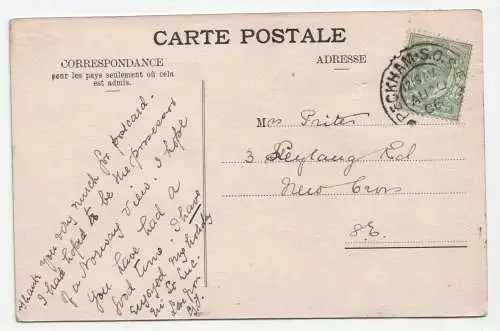 CARTE POSTALE
CORRESPONDANCE
pour les pays seulement où cela
est admis.
ADRESSE
PECKHAM.S.O.S.E
AU
06
Thank you very much for postcard.
I had hoped to be the possessor
of a Norway view. I hope
you have had a
good time. I have
enjoyed my holiday
in St
London
Mrs
3
Rd
New Cross
S.E.